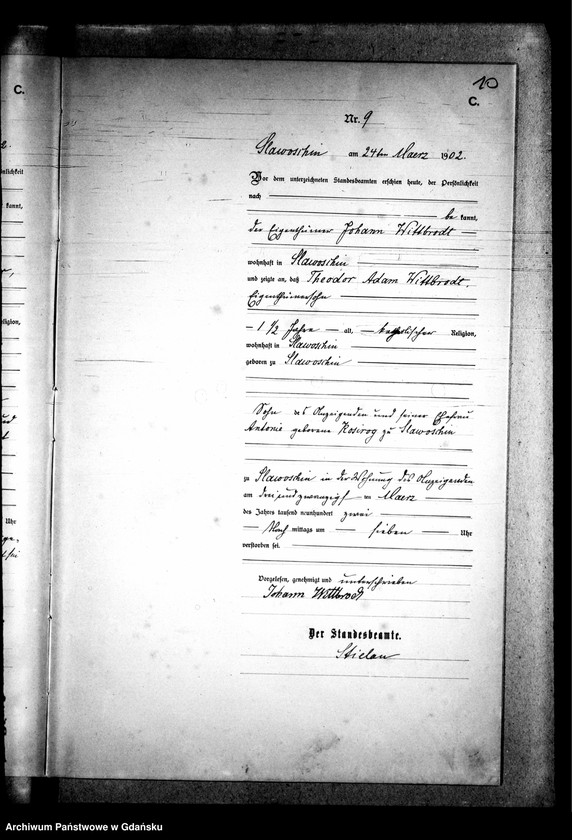 10
C.
C.
Nr. 9
Slawoschin am 24ten Maerz 1902.
Vor dem unterzeichneten Standesbeamten erschien heute, der Persönlichkeit
nach
be kannt,
der Eigenthümer Johann Wittbrodt
wohnhaft in Slawoschin
und zeigte an, daß Theodor Adam Wittbrodt,
Eigenthümersohn
1 1/2 Jahre alt, katholischer Religion,
wohnhaft in Slawoschin
geboren zu Slawoschin
Sohn des Anzeigenden und seiner Ehefrau
Antonie geborene Kosirog zu Slawoschin
zu Slawoschin in der Wohnung des Anzeigenden
am drei und zwanzigs ten Maerz
des Jahres tausend neunhundert zwei
Nach mittags um sieben Uhr
verstorben sei.
Vorgelesen, genehmigt und unterschrieben
Johann Wittbrodt
Der Standesbeamte.
Archiwum Państwowe w Gdańsku